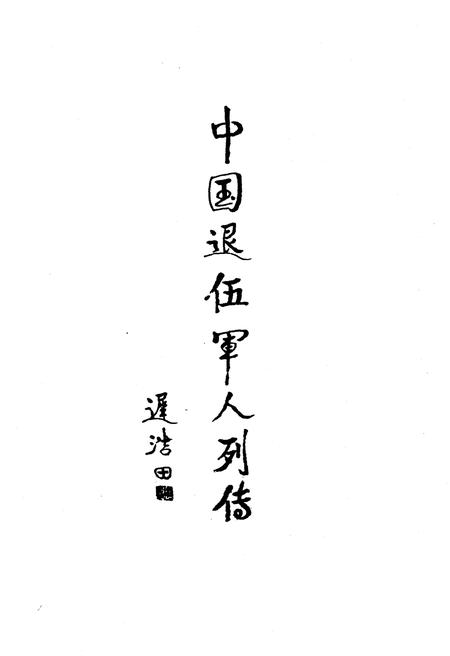 中国退伍軍人列传
遲浩田